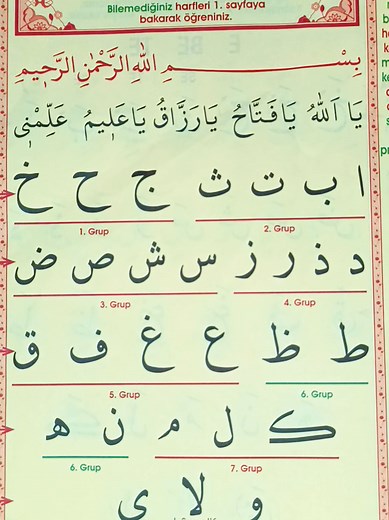 Bilemediğiniz harfleri 1. sayfaya
bakarak öğreniniz.
بِسْمِ اللهِ الرَّحْمٰنِ الرَّحِيمِ
يَا اَللهُ يَا فَتَّاحُ يَا رَزَّاقُ يَا عَلِيمُ عَلِّمْنِى
ا ب ت ث ج ح خ
1. Grup 2. Grup
د ذ ر ز س ش ص ض
3. Grup 4. Grup
ط ظ ع غ ف ق
5. Grup 6. Grup
ك ل م ن ه
6. Grup 7. Grup
و لا ى